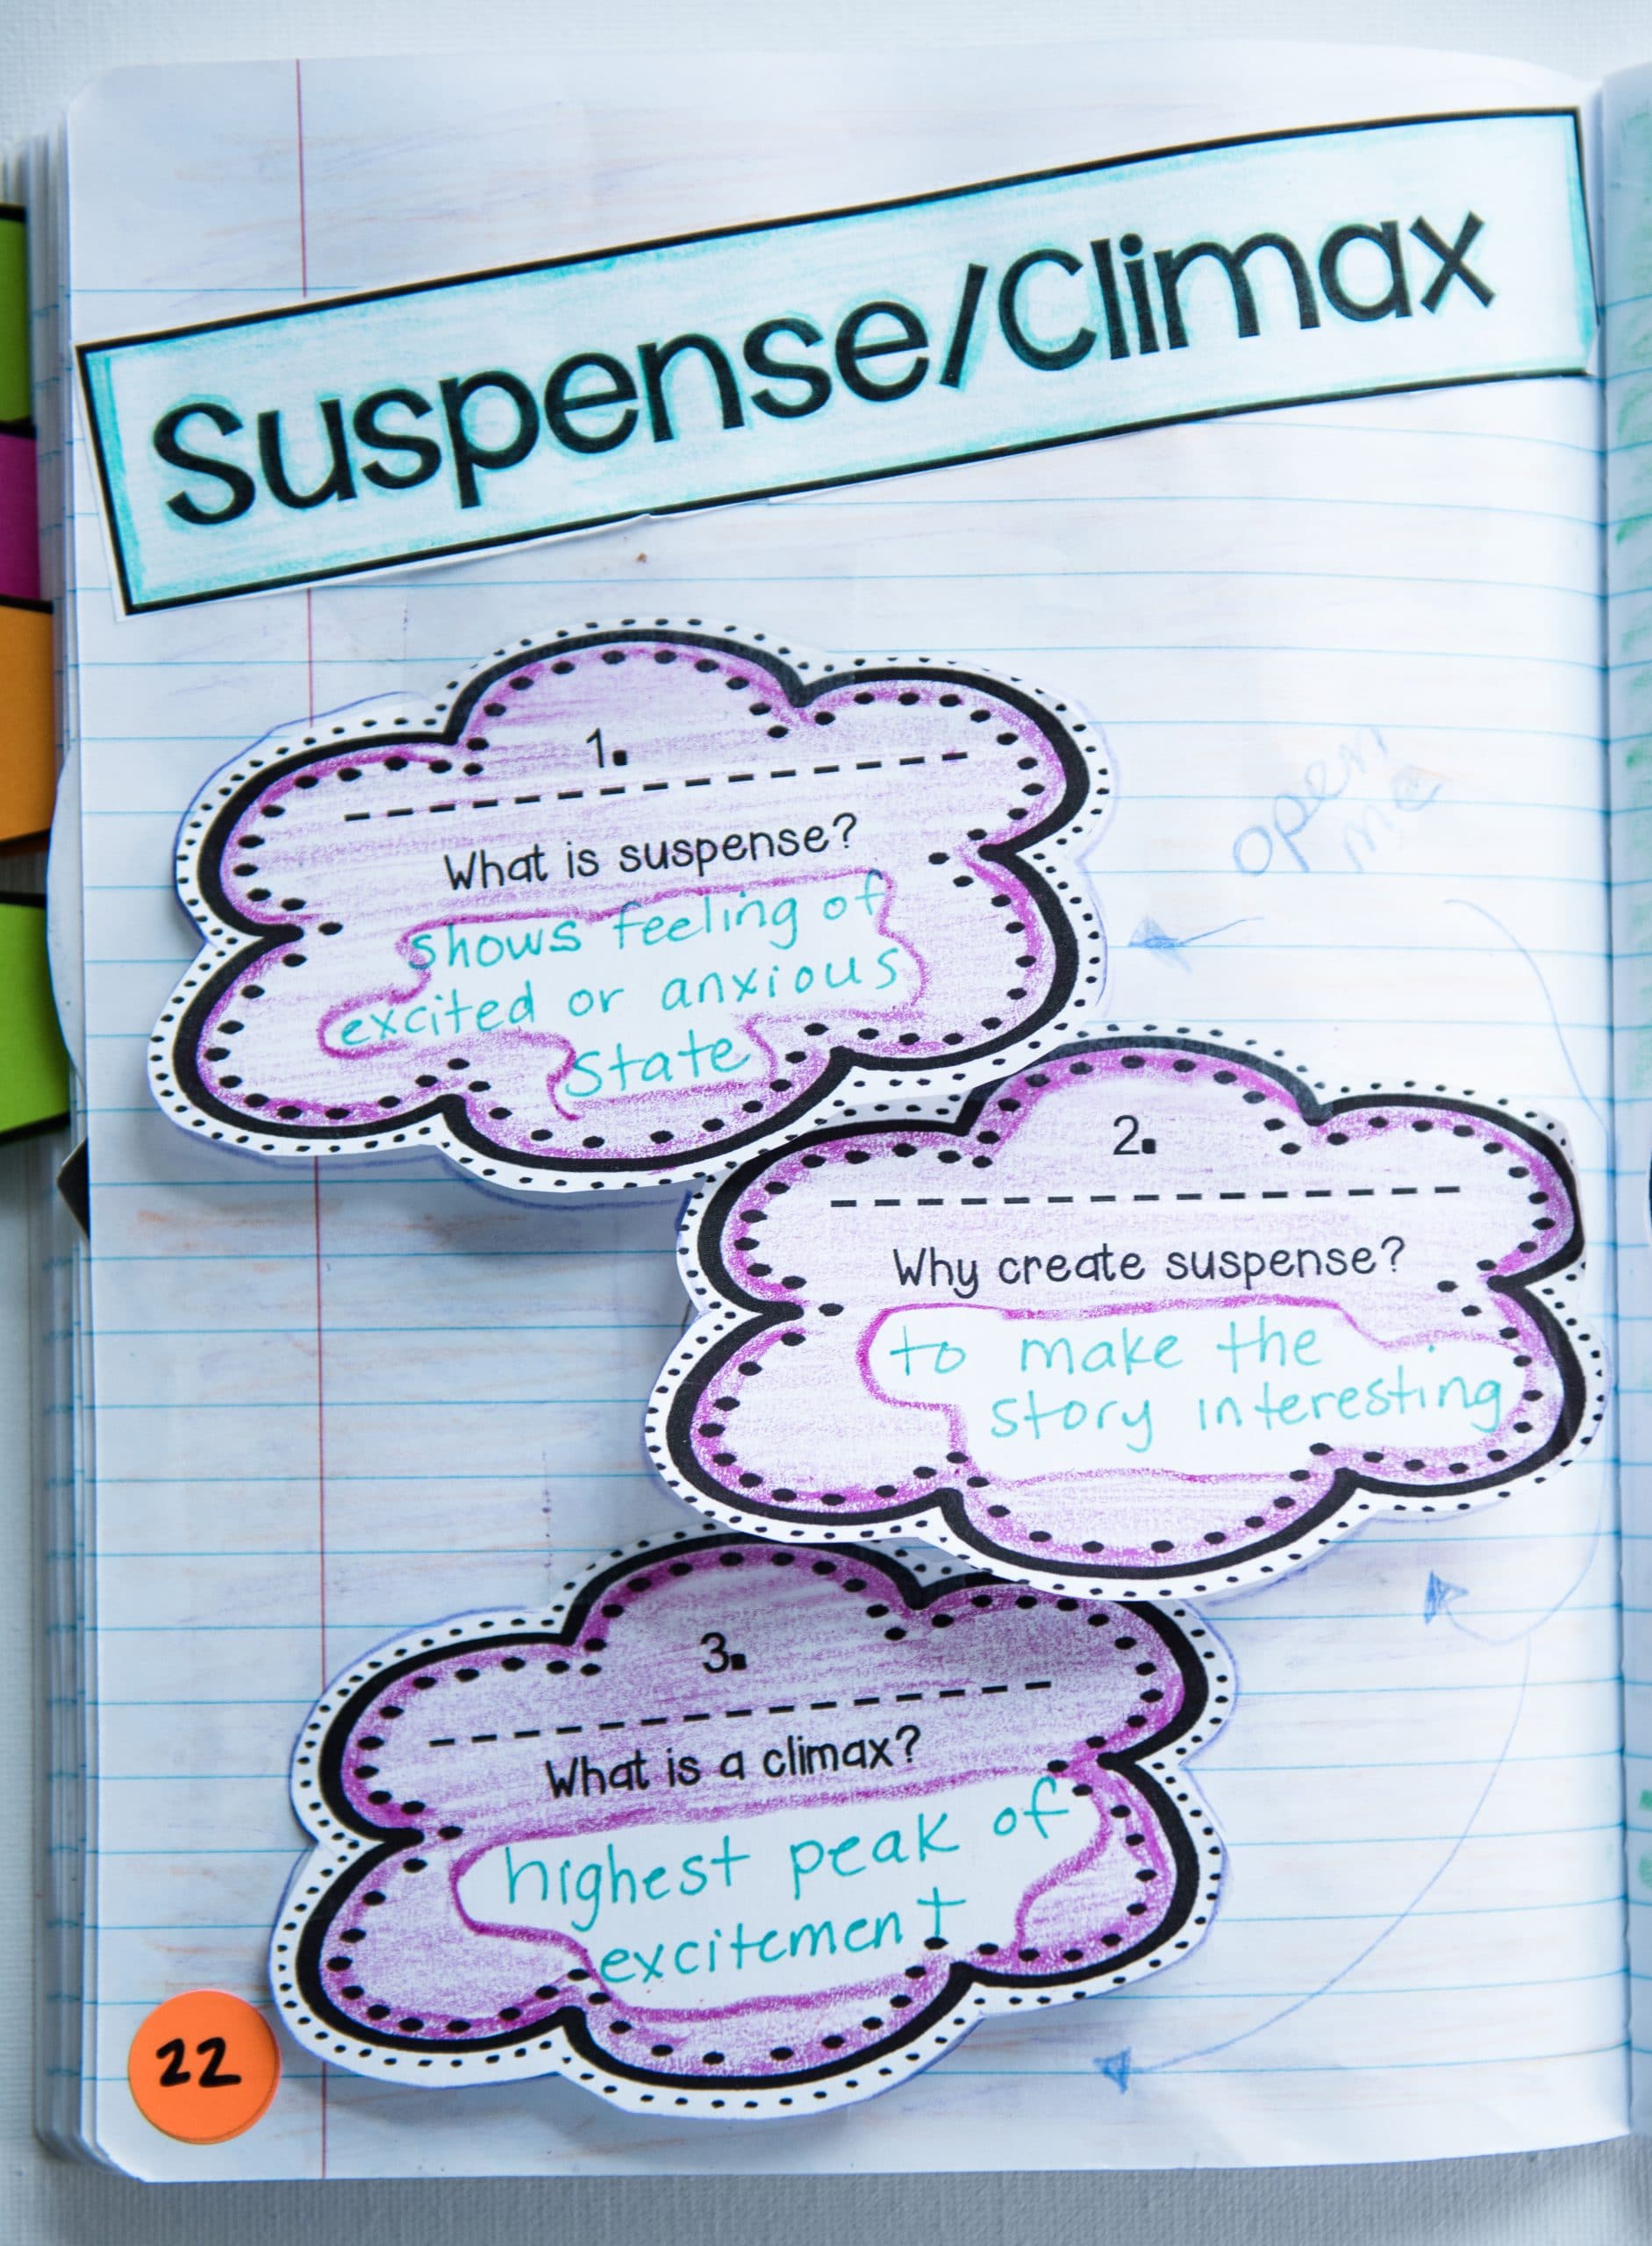 Suspense/Climax
1.
What is suspense?
shows feeling of
excited or anxious
state
open
me
2.
Why create suspense?
to make the
story interesting
3.
What is a climax?
highest peak of
excitement
22